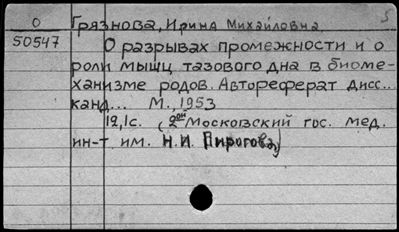 О Грязнова, Ирина Михайловна 5
50547 О разрывах промежности и о
роли мышц тазового дна в биоме-
ханизме родов. Автореферат дисс...
канд... М., 1953
12,1с. (2ой Московский гос. мед.
ин-т им. Н.И. Пирогова)